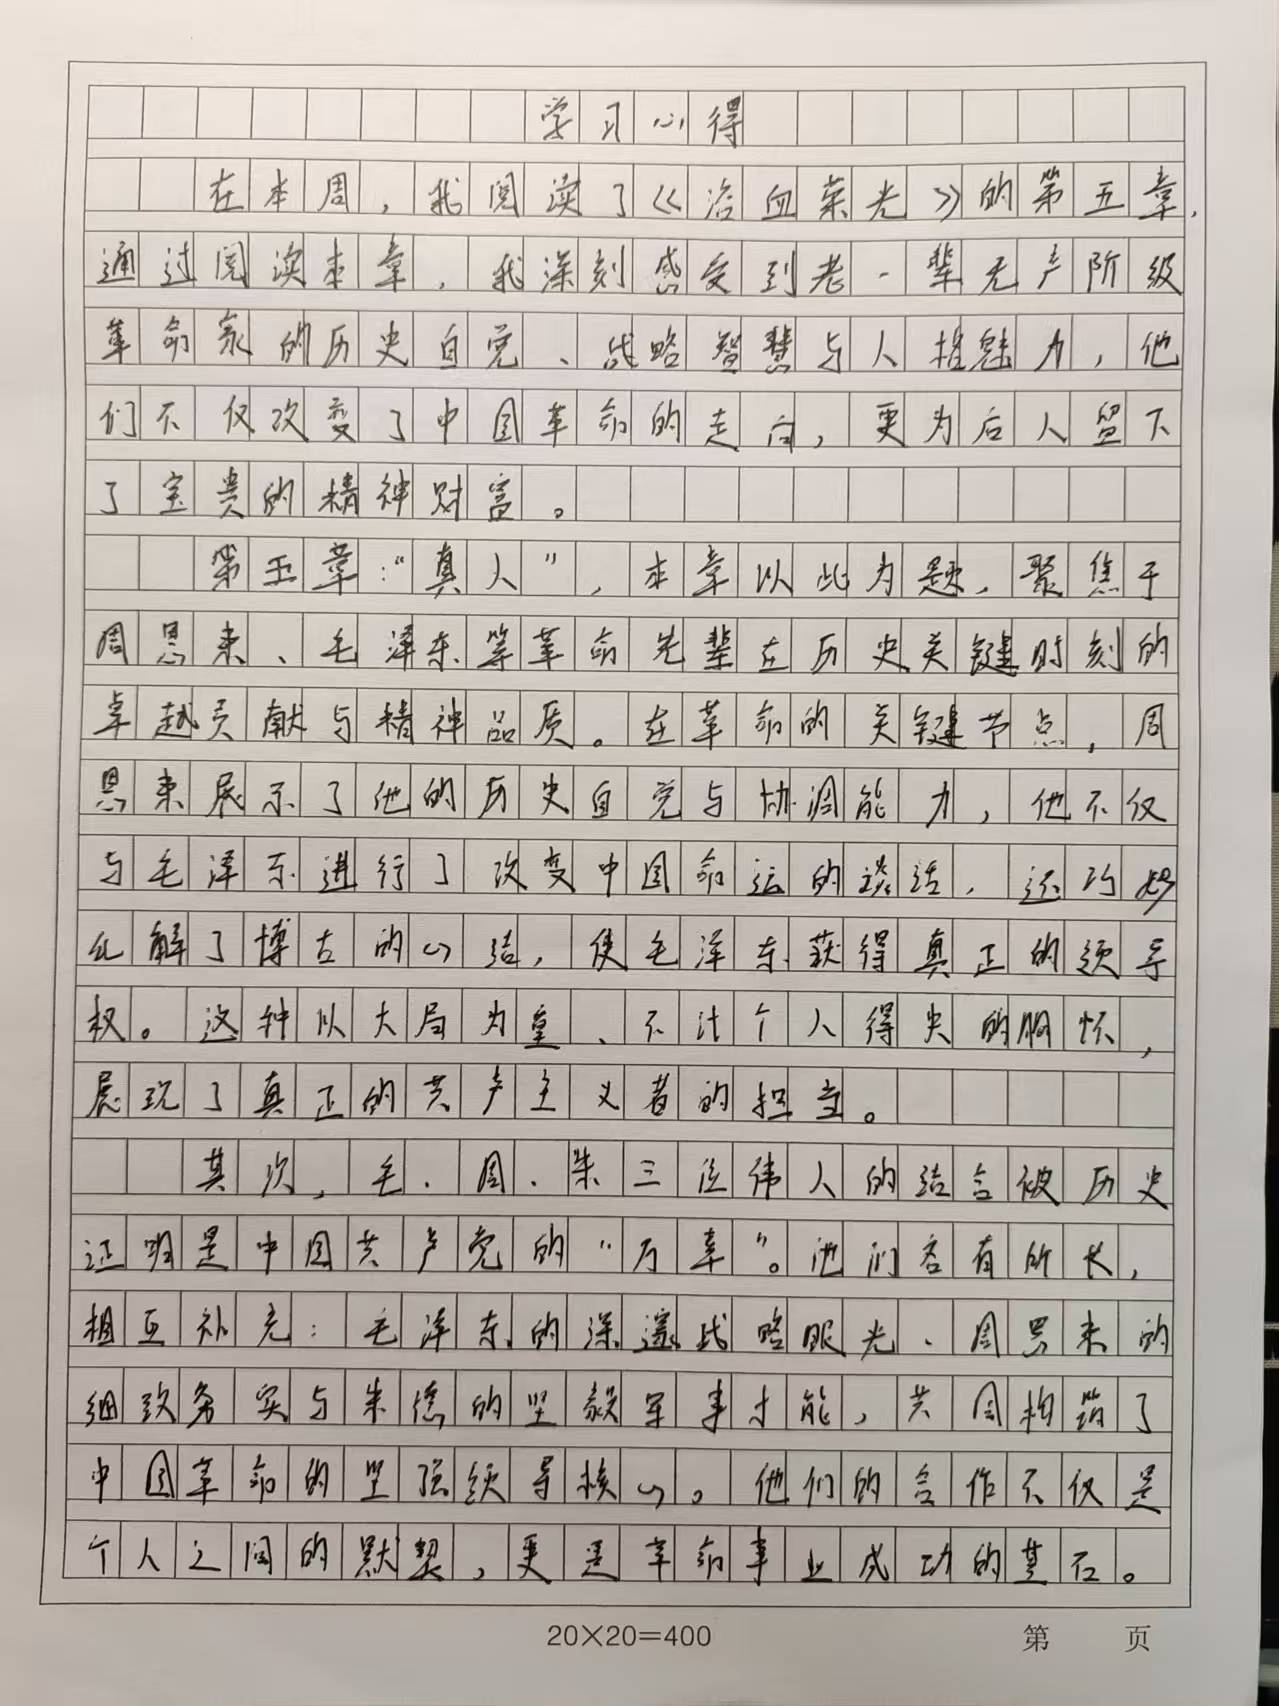 学习心得
在本周,我阅读了《浴血荣光》的第五章,
通过阅读本章,我深刻感受到老一辈无产阶级
革命家的历史自觉、战略智慧与人格魅力,他
们不仅改变了中国革命的走向,更为后人留下
了宝贵的精神财富。
第五章:“真人”,本章以此为题,聚焦于
周恩来、毛泽东等革命先辈在历史关键时刻的
卓越贡献与精神品质。在革命的关键节点,周
恩来展示了他的历史自觉与协调能力,他不仅
与毛泽东进行了改变中国命运的谈话,还巧妙
化解了博古的心结,使毛泽东获得真正的领导
权。这种以大局为重、不计个人得失的胸怀,
展现了真正的共产主义者的担当。
其次,毛、周、朱三位伟人的结合被历史
证明是中国共产党的“万幸”。他们各有所长,
相互补充:毛泽东的深邃战略眼光、周恩来的
细致务实与朱德的坚毅军事才能,共同构筑了
中国革命的坚强领导核心。他们的合作不仅是
个人之间的默契,更是革命事业成功的基石。
20×20=400
第 页